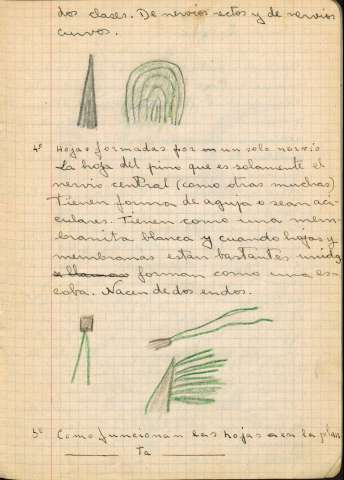 dos clases. De nervios rectos y de nervios
curvos.
4º Hojas formadas por un solo nervio
La hoja del pino que es solamente el
nervio central (como otras muchas)
Tienen forma de aguja o sean aci
culares. Tienen como una mem-
branita blanca y cuando hojas y
membranas están bastantes unidas
se llaman forman como una es-
coba. Nacen de dos en dos.
5º Como funcionan las hojas a en la plan
ta